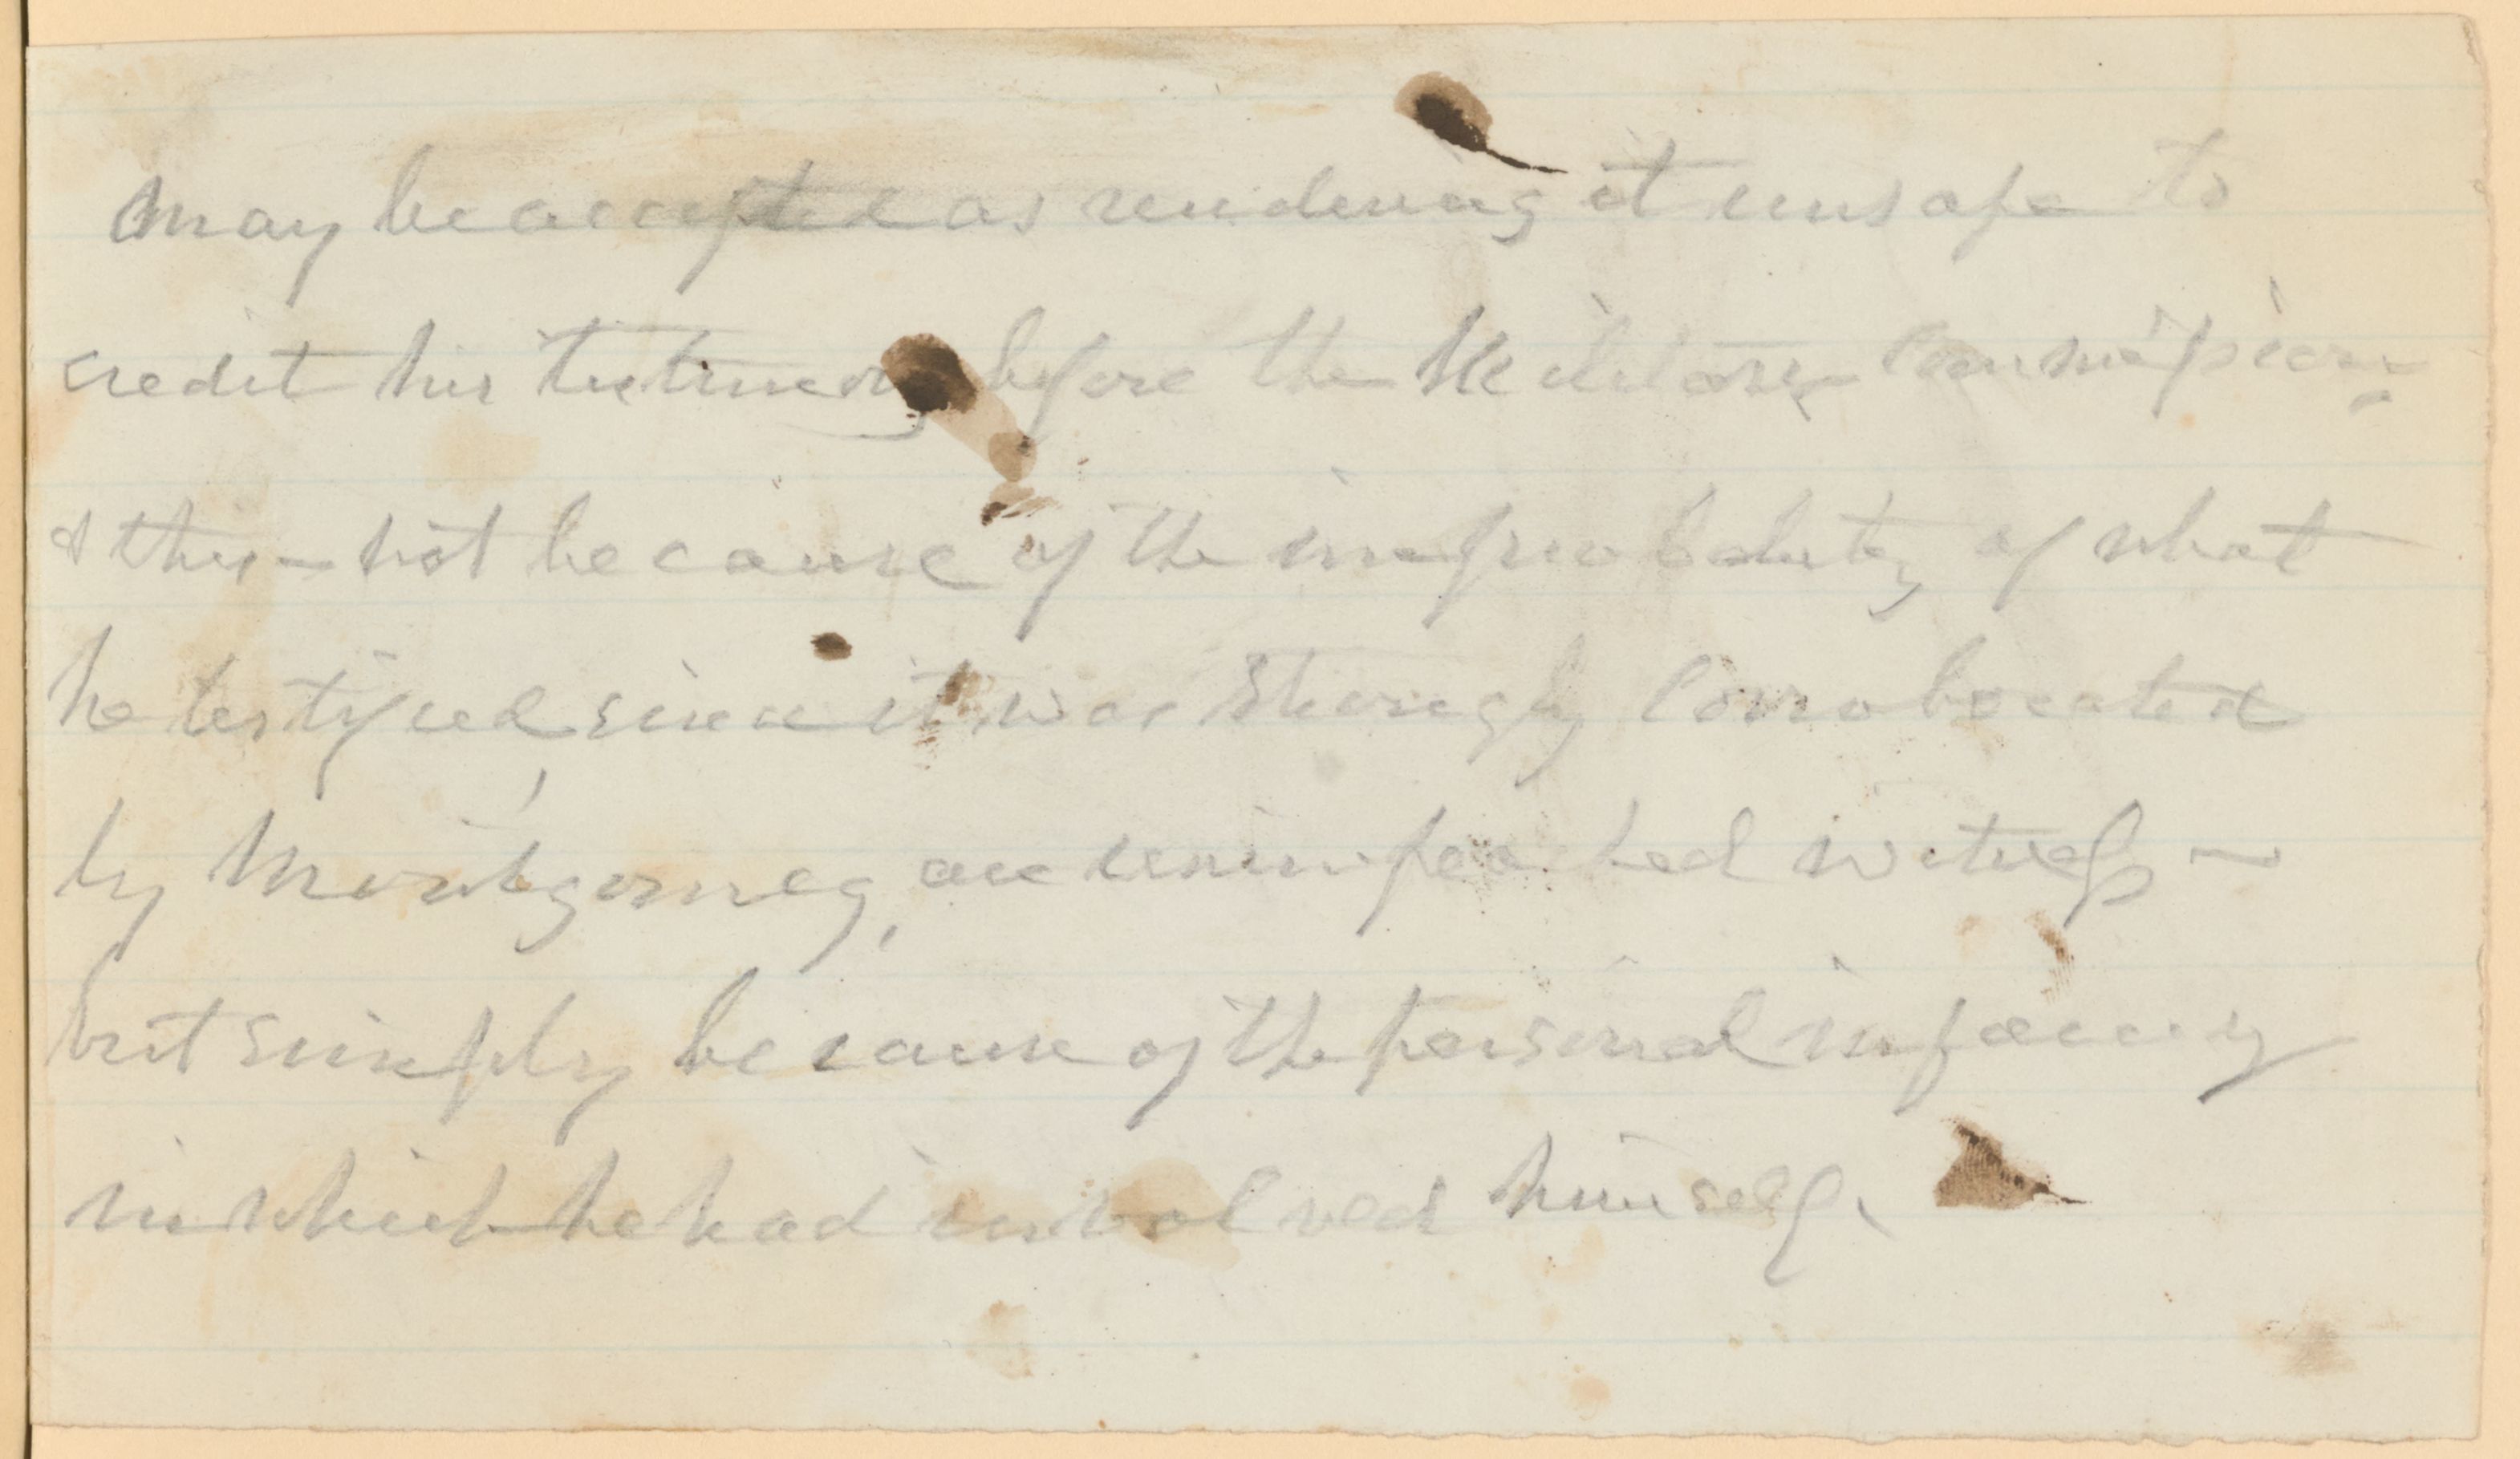 may be accepted as rendering it unsafe to
credit his testimony before the Military Commission -
& this - not because of the improbability of what
he testified since it was strongly corroborated
by Montgomery, an unimpeached witness -
but simply because of the personal infamy
in which he had involved himself.